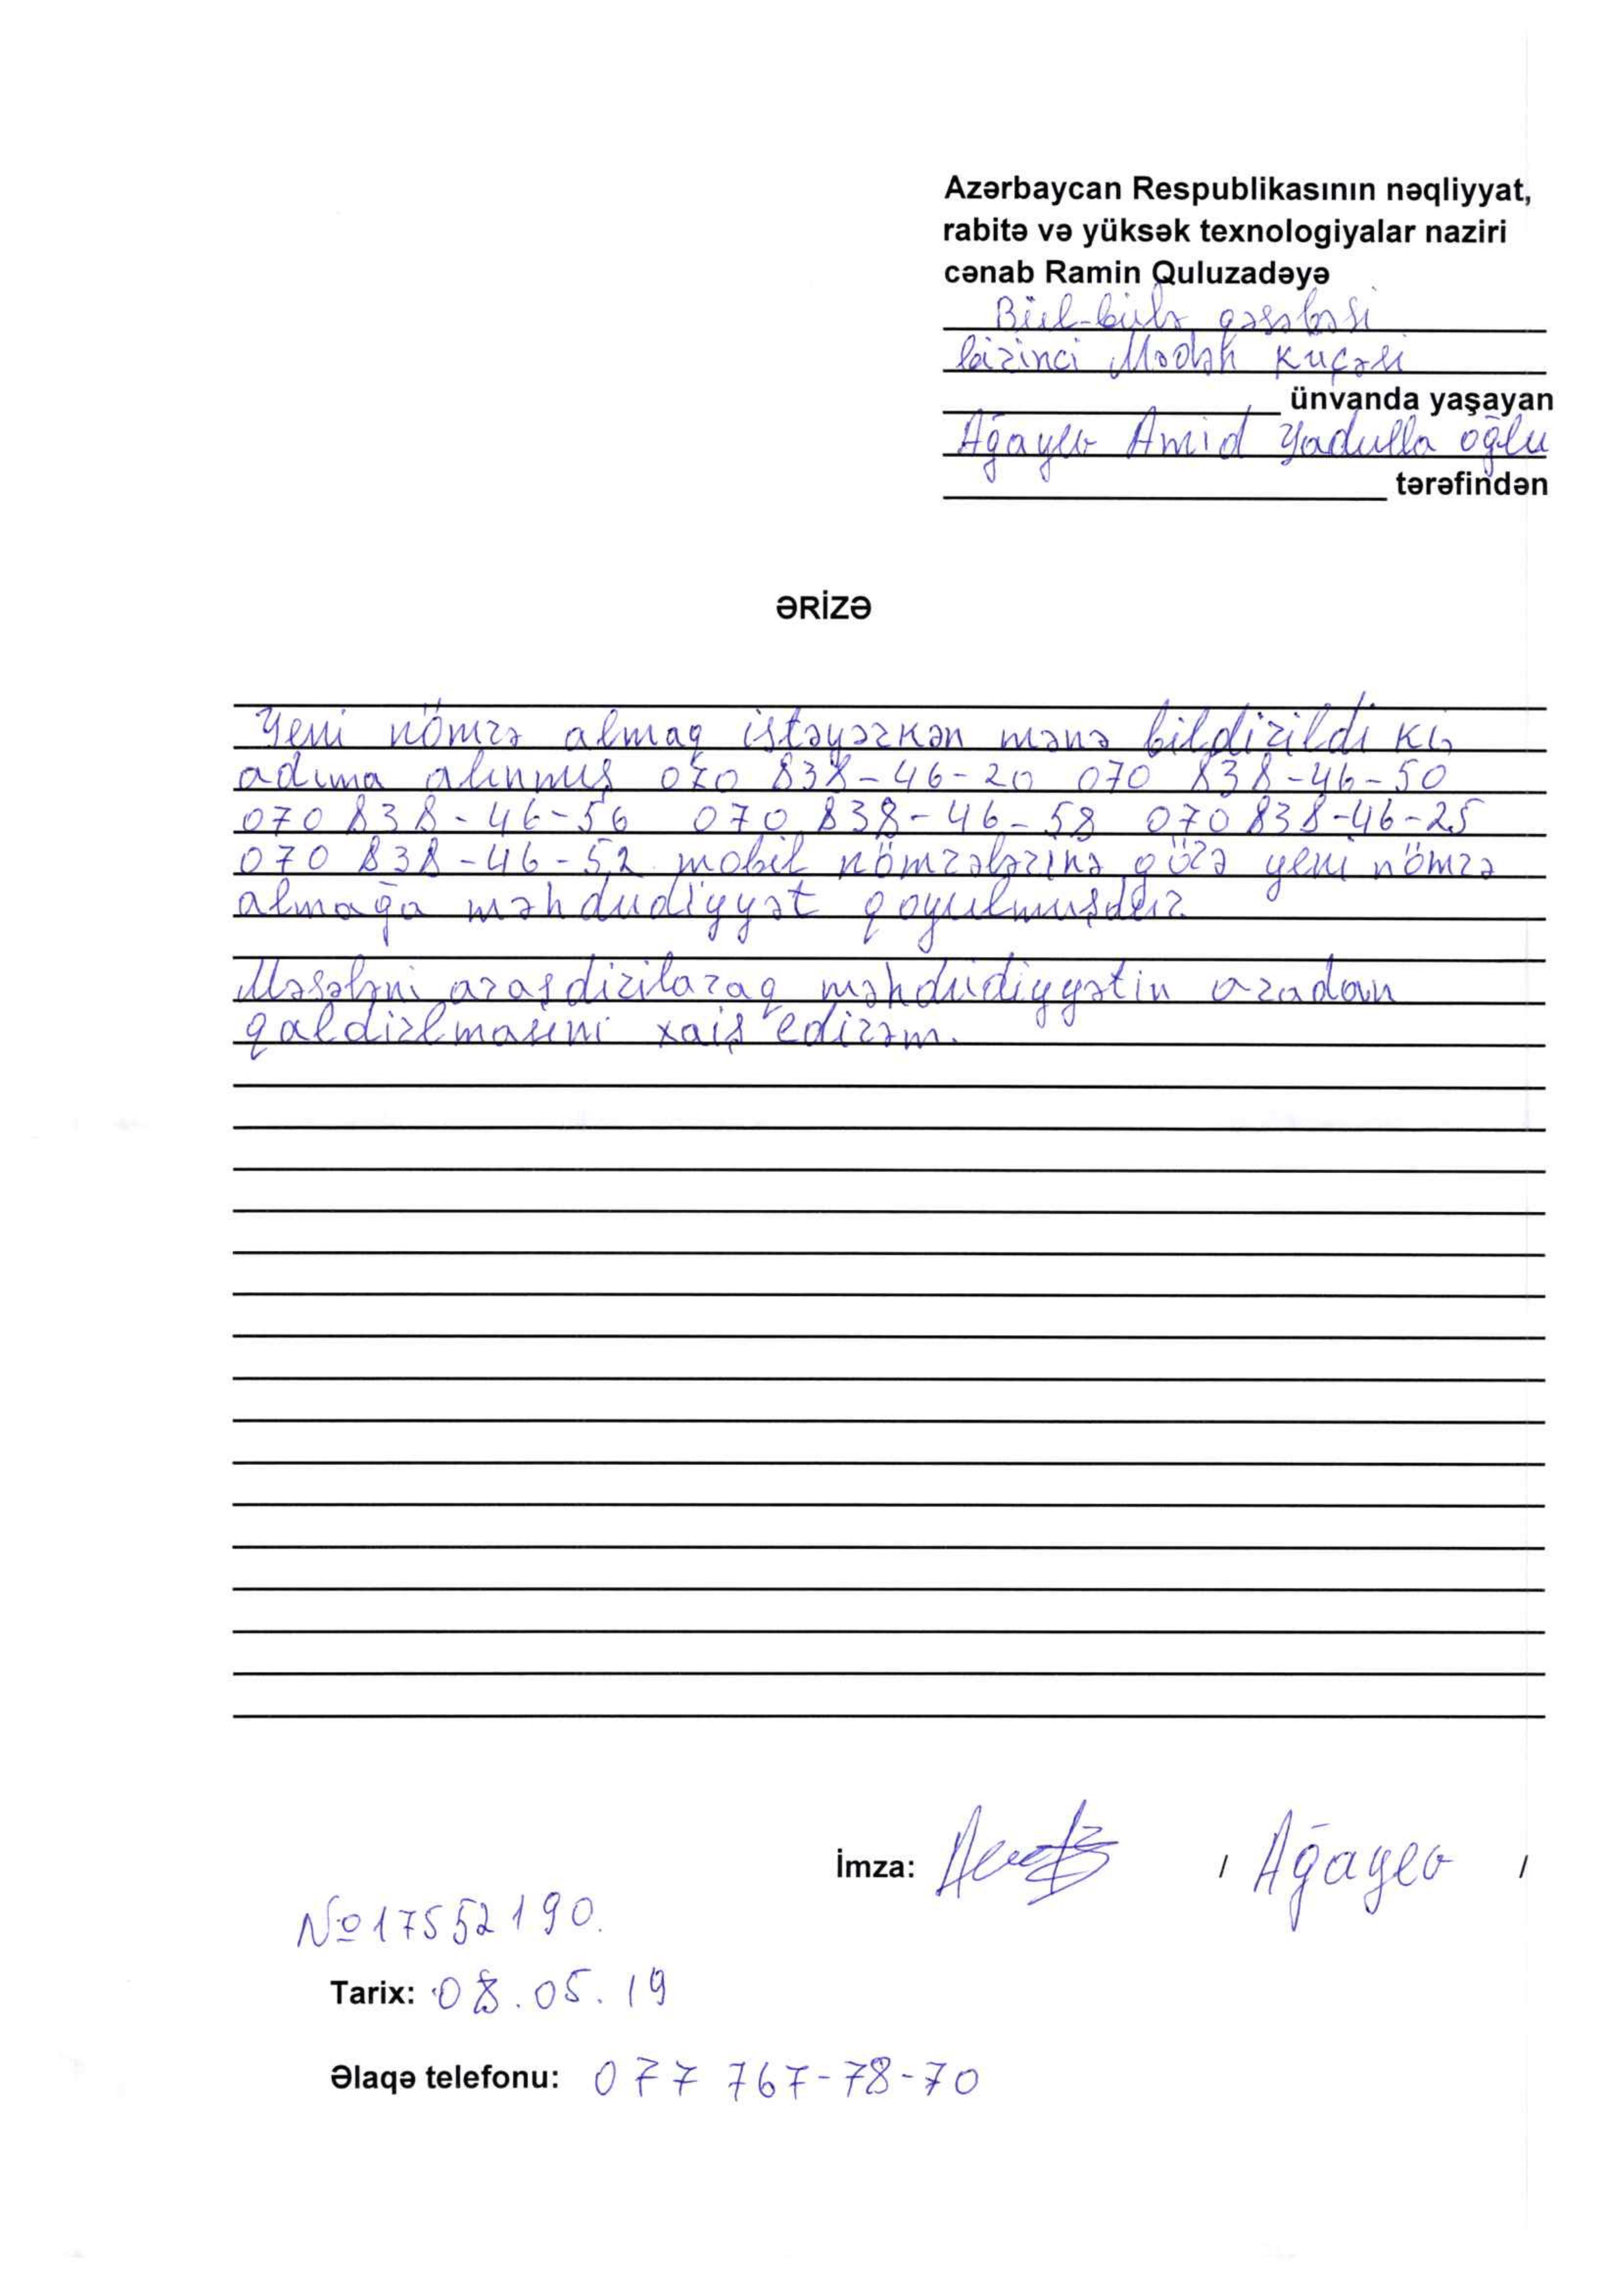 Azərbaycan Respublikasının nəqliyyat,
rabitə və yüksək texnologiyalar naziri
cənab Ramin Quluzadəyə
Bül-bülə qəsəbəsi
birinci Mədəh küçəsi
ünvanda yaşayan
Ağayev Amid Yadulla oğlu
tərəfindən
ƏRİZƏ
Yeni nömrə almaq istəyərkən mənə bildirildi ki,
adıma alınmış 070 838-46-20 070 838-46-50
070 838-46-56 070 838-46-58 070 838-46-25
070 838-46-52 mobil nömrələrinə görə yeni nömrə
almağa məhdudiyyət qoyulmuşdur.
Məsələni araşdirilaraq məhdudiyyətin aradan
qaldirlmasını xaiş edirəm.
İmza: / Ağayev /
№17552190.
Tarix: 08.05.19
Əlaqə telefonu: 077 767-78-70